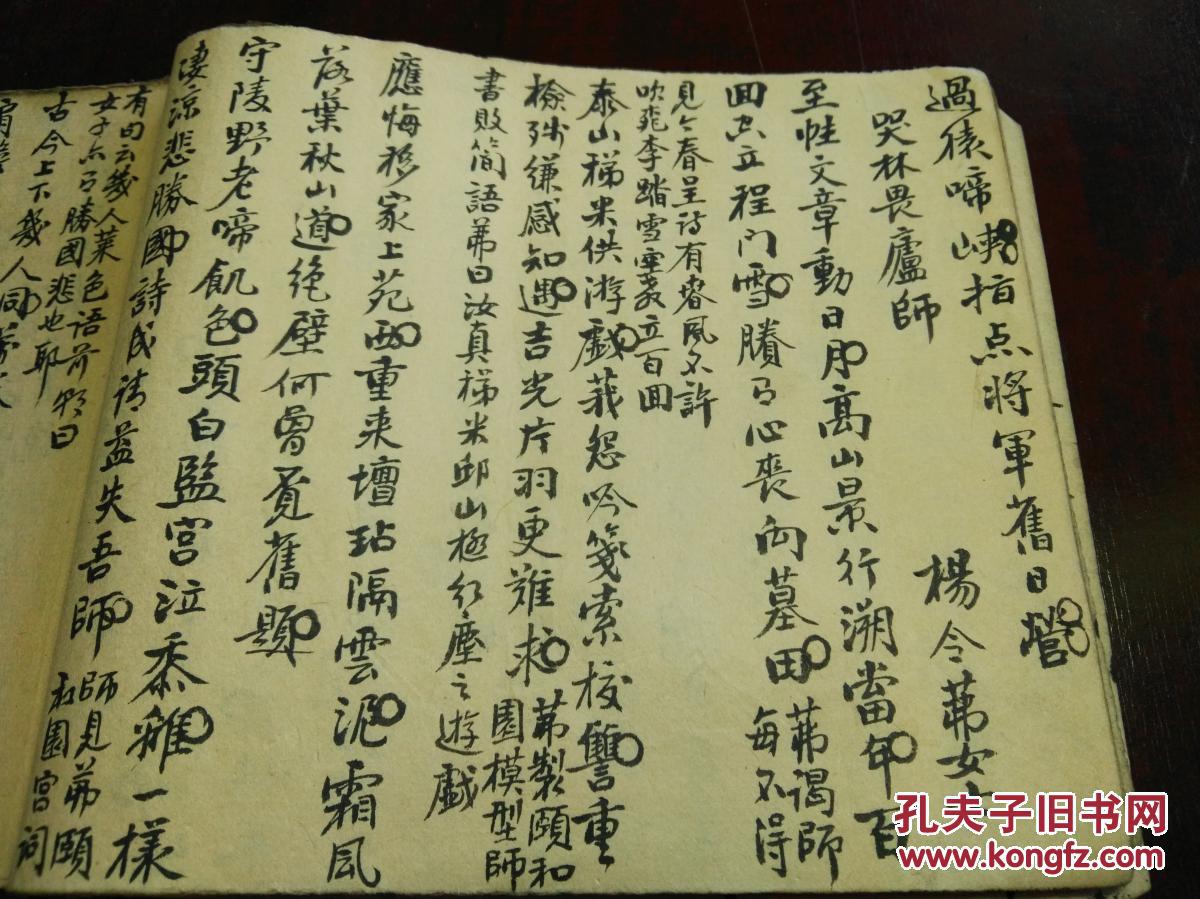 過猿啼峽指点將軍舊日營
哭林畏廬師
楊令茀女
至性文章動日月高山景行溯當年百
回立程门雪賸有心喪向墓田
茀謁師
每不得
見今春呈诗有春风不許
吹飛李踏雪重教立百回
泰山稊米供游戲莪怨吟箋索校讐重
檢殘縑感知遇吉光片羽更难求
茀製頤和
園模型師
書敗简語茀曰汝真稊米邱山極红塵之遊戲
應悔移家上苑西重来壇坫隔雲泥霜风
落葉秋山道绝壁何曾覓舊題
守陵野老啼飢色頭白監宮泣黍離一樣
淒涼悲勝國詩成請益失吾師
師見茀頤
和園宮詞
有句云幾人菜色語前朝曰
女子亦有勝國悲也耶
古今上下幾人同
孔夫子旧书网
www.kongfz.com